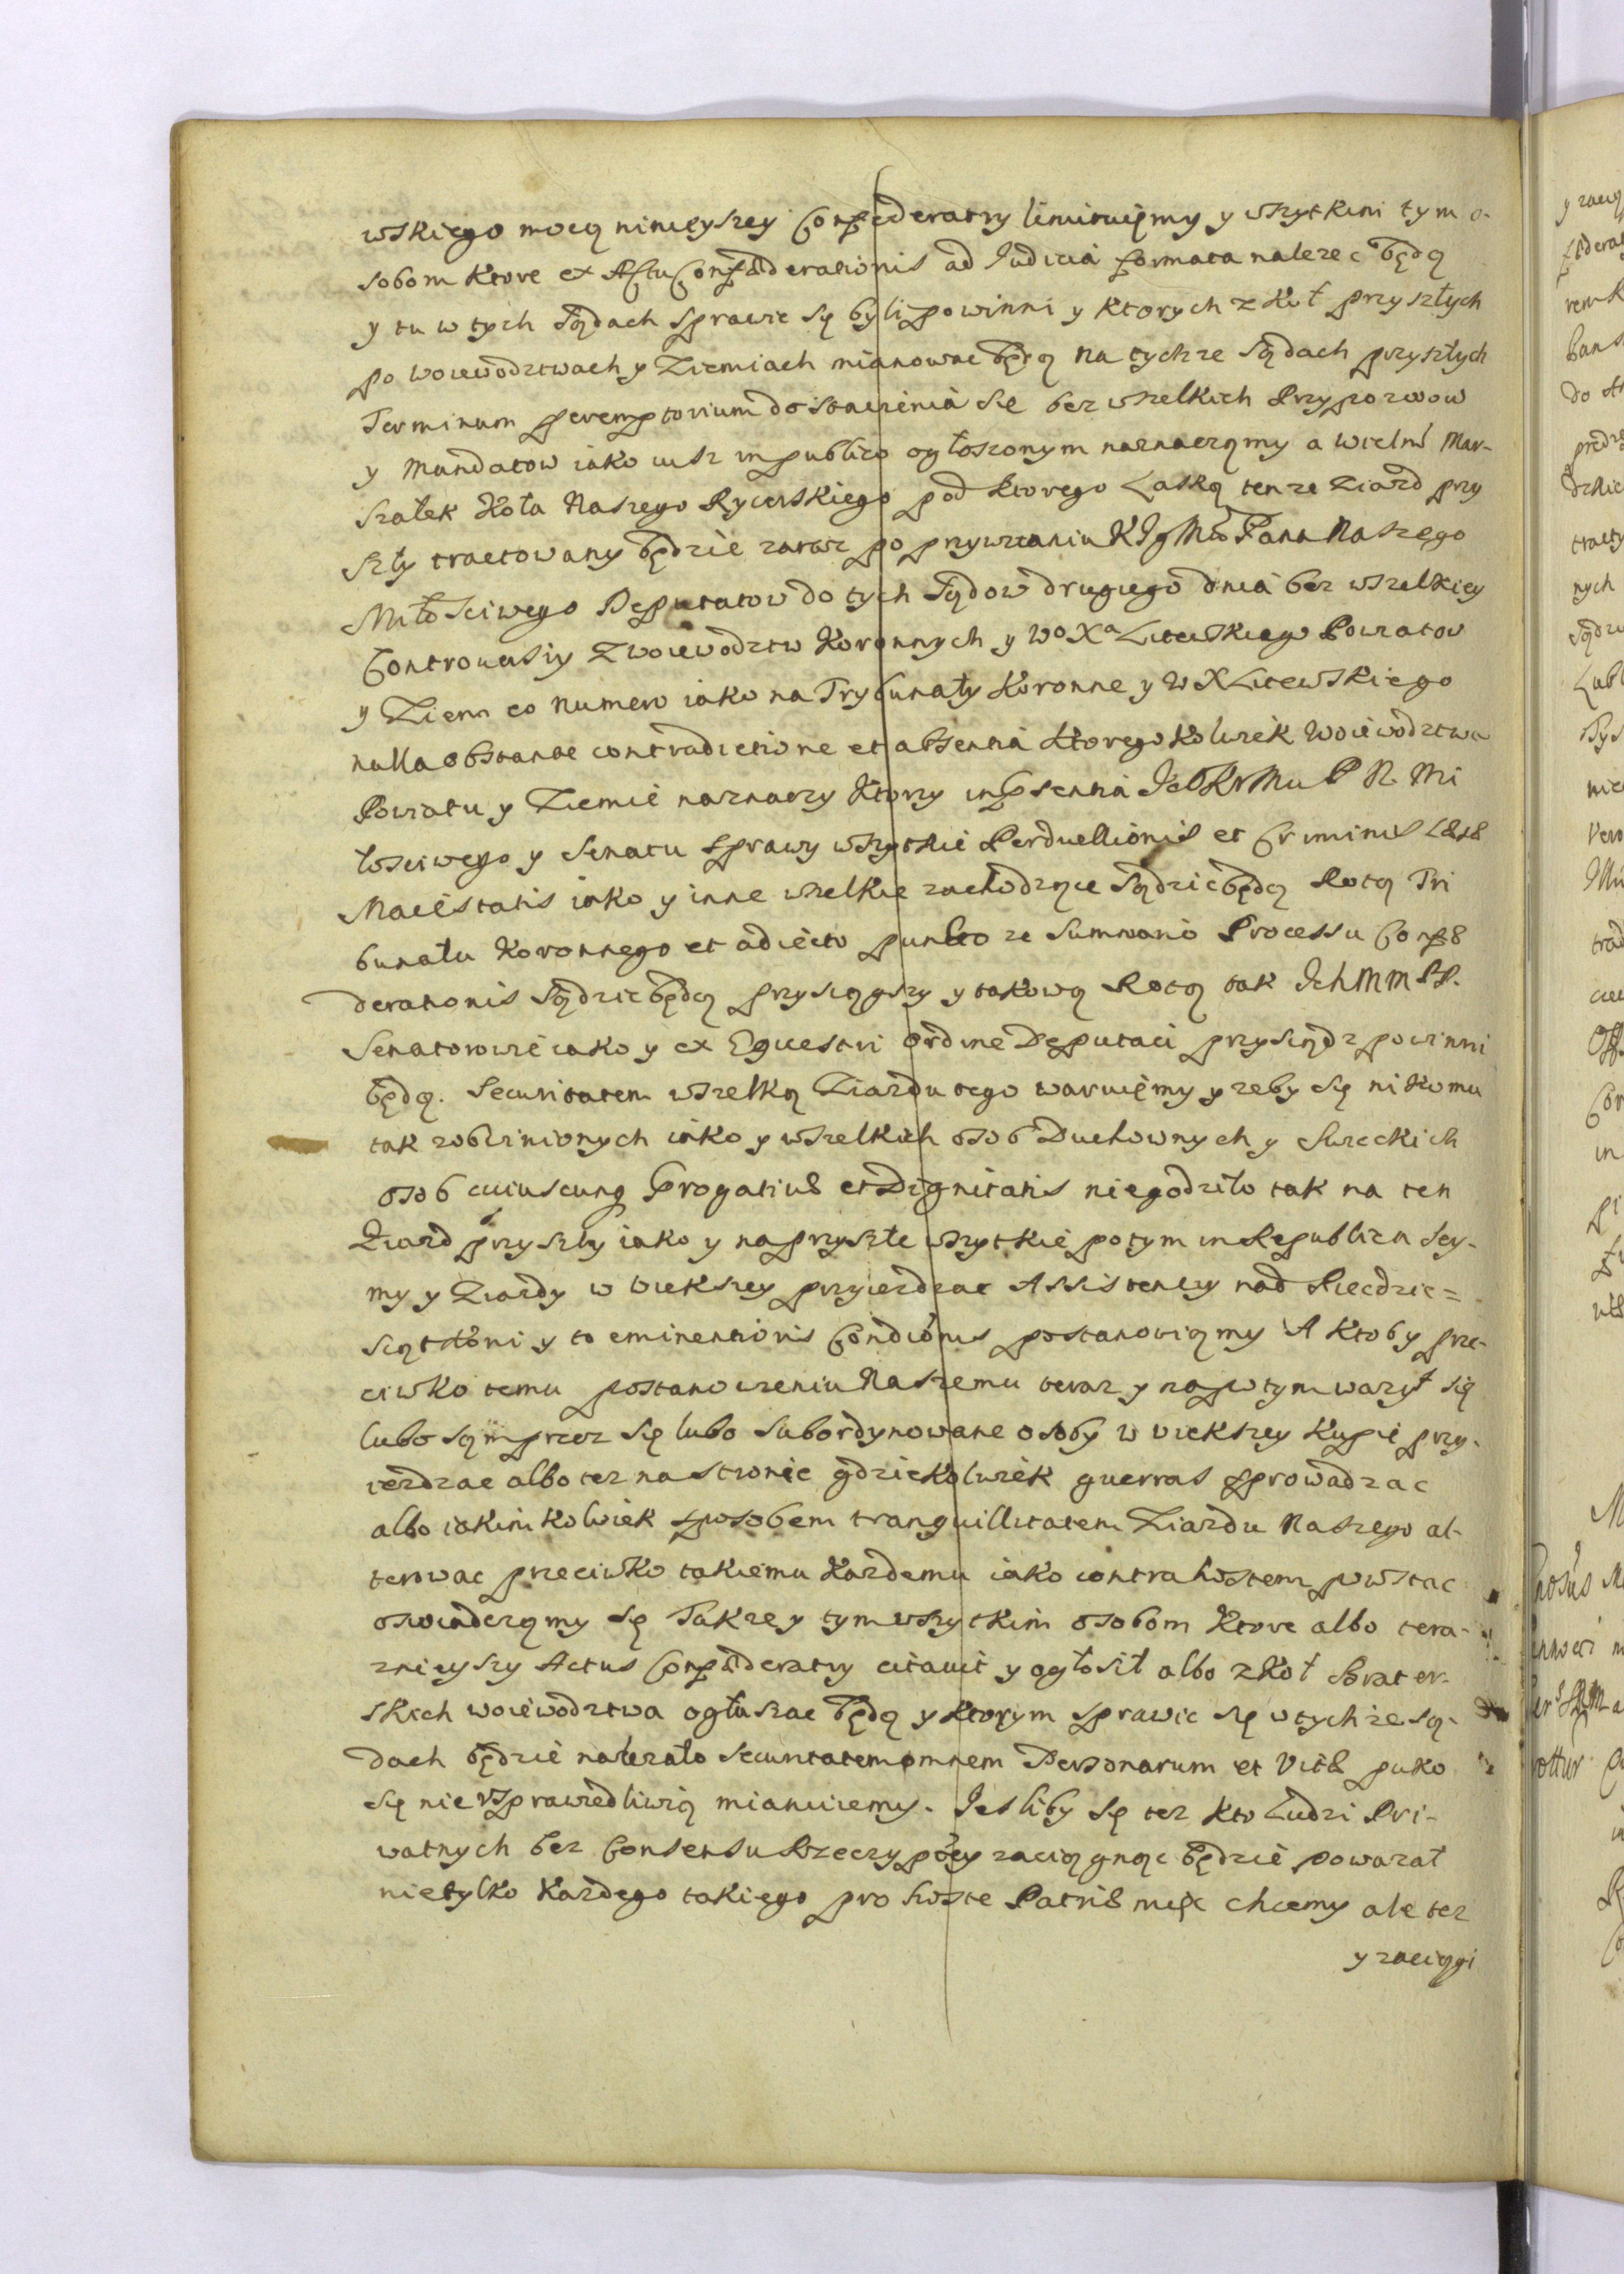 wskiego mocą ninieyszey Confæderatiy limituięmy y wszytkini tym o-
sobom Ktore ex Actu Confæderationis ad Judicia formata nalezec będą
y tu w tych Sądach Sprawic Sę byli powinni y Ktorych z Koł przyszłych
po woiewodztwach y Ziemiach mianowac będą na tychze Sądach przyszłych
Terminum peremptorium do stawienia Się bez wszelkich Przypozwow
y Mandatow iako iusz in publico ogłoszonym naznaczamy a wielm̃ Mar-
szałek Koła Naszego Rycerskiego pod Ktorego Laską tenze Ziazd przy
Szły tractowany będzie zaraz po przywitaniu K J Mci Pana Naszego
Miłosciwego Deputatow do tych Sądow drugiego dnia bez wszelkiey
Controuersiy z woiewodztw Koronnych y Wo Xa Litewskiego Powiatow
y Ziem eo numero iako na Trybunały Koronne y W X Litewskiego
nulla obstante contradictione et absentia Ktoregokolwiek woiewodztwa
Powiatu y Ziemie naznaczy Ktorzy in psentia Je Kr Mci P N. Mi
łosciwego y Senatu Sprawy wszytkie Perduellionis et Criminis Læsæ
Maiestatis iako y inne wszelkie zachodzące Sądzic będą Rotą Tri
bunału Koronnego et adiecto puncto ze Summario Processu Confæ
derationis Sądzic będą przysiągszy y takową Rotą tak Ich MM PP.
Senatorowie iako y ex Equestri ordine Deputaci przysiądz powinni
będą. Securitatem wszelką Ziazdu tego waruięmy y zeby Się nikomu
tak zobwinionych iako y wszelkich osob Duchownych y Swieckich
osob cuiuscunq Progatiuæ et Dignitatis niegodziło tak na ten
Ziazd przyszły iako y na przyszłe wszytkie potym in Republica Sey-
my y Ziazdy w wiekszey przyiezdzac Assistencyy nad Piecdzie=
siąt Koni y to eminentioris Condiõnis postanowiamy A Kto by prze-
ciwko temu postanowieniu Naszemu teraz y napotym wazył się
lubo sąm przez Się lubo Subordynowane osoby w wiekszey Kupie przy-
iezdzac albo tez na stronie gdziekolwiek guerras sprowadzac
albo iakimkolwiek sposobem tranquillitatem Ziazdu Naszego al-
terowac przeciwko takiemu Kazdemu iako contra hostem powstac
oswiadczamy Sę Takze y tym wszytkim osobom Ktore albo tera-
znieyszy Actus Confæderatiy citauit y ogłosił albo z Koł Brater-
skich woiewodztwa ogłaszac będą y Ktorym Sprawic Się w tychze Są-
dach będzie nalezało Securitatem omnem Personarum et Vitæ puko
Sę nie Vsprawiedliwią mianuiemy. Jesliby Sę tez Kto Ludzi Pri-
watnych bez Consensu Rzeczypõey zaciągnąc będzie powazał
nietylko Kazdego takiego pro hoste Patriæ miec chcemy ale tez
y zaciągi